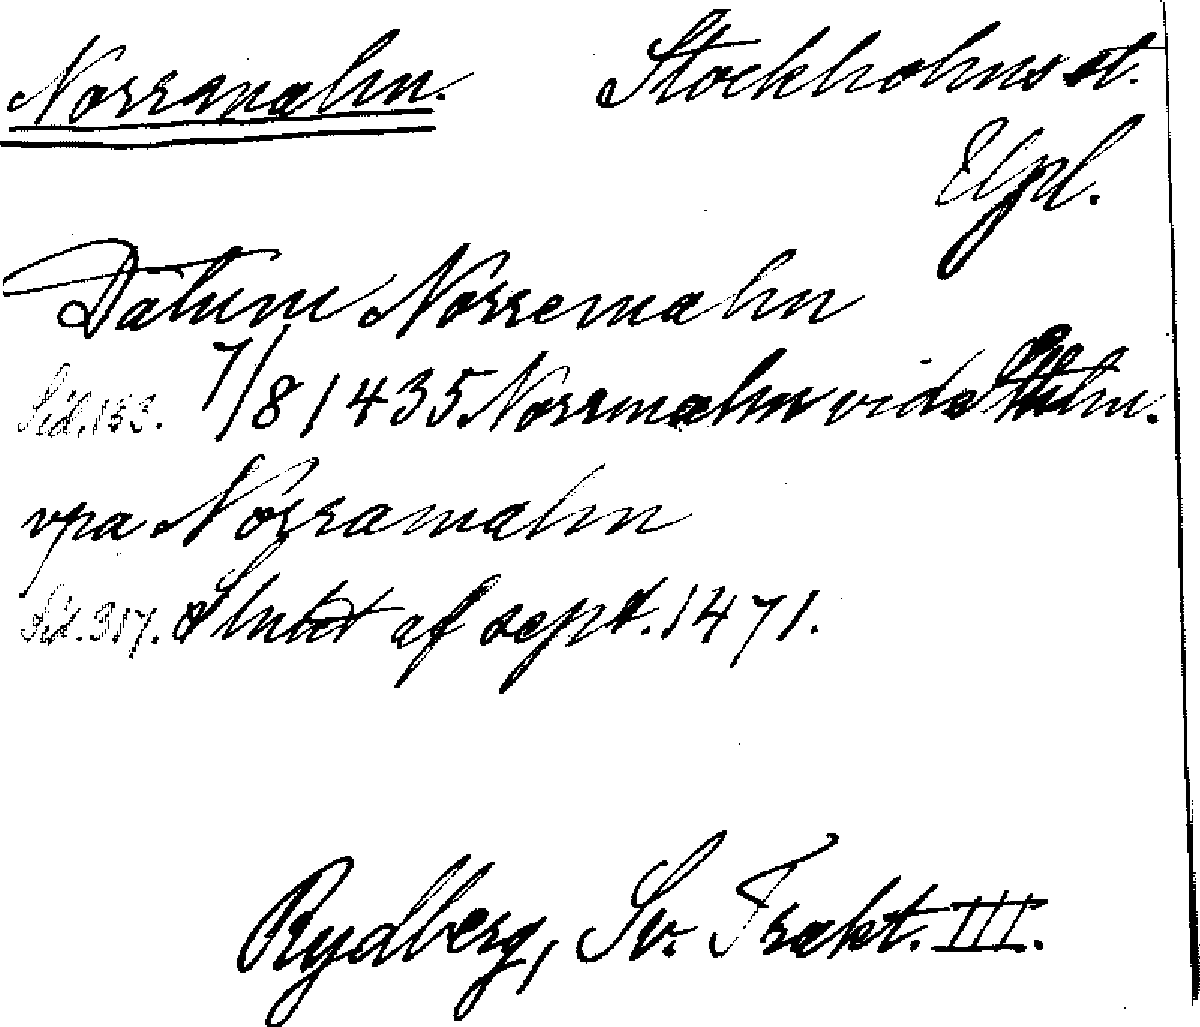 Norrmalm. Stockholms st.
Upl.
Datum Norremalm
Sid. 153. 7/8 1435 Norrmalm vid Sthlm.
vpa Norramalm
Sid. 317. Slutet af sept. 1471.
Rydberg, Sv. Trakt. III.